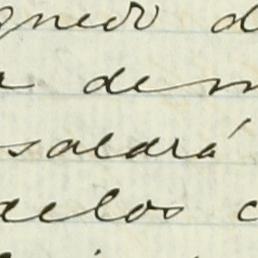 gnedo d
r de m
saldrá
delos c